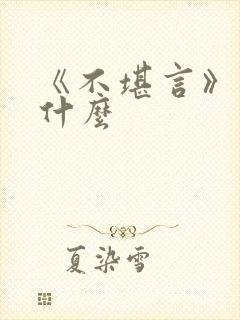 《不堪言》
什麼
夏染雪